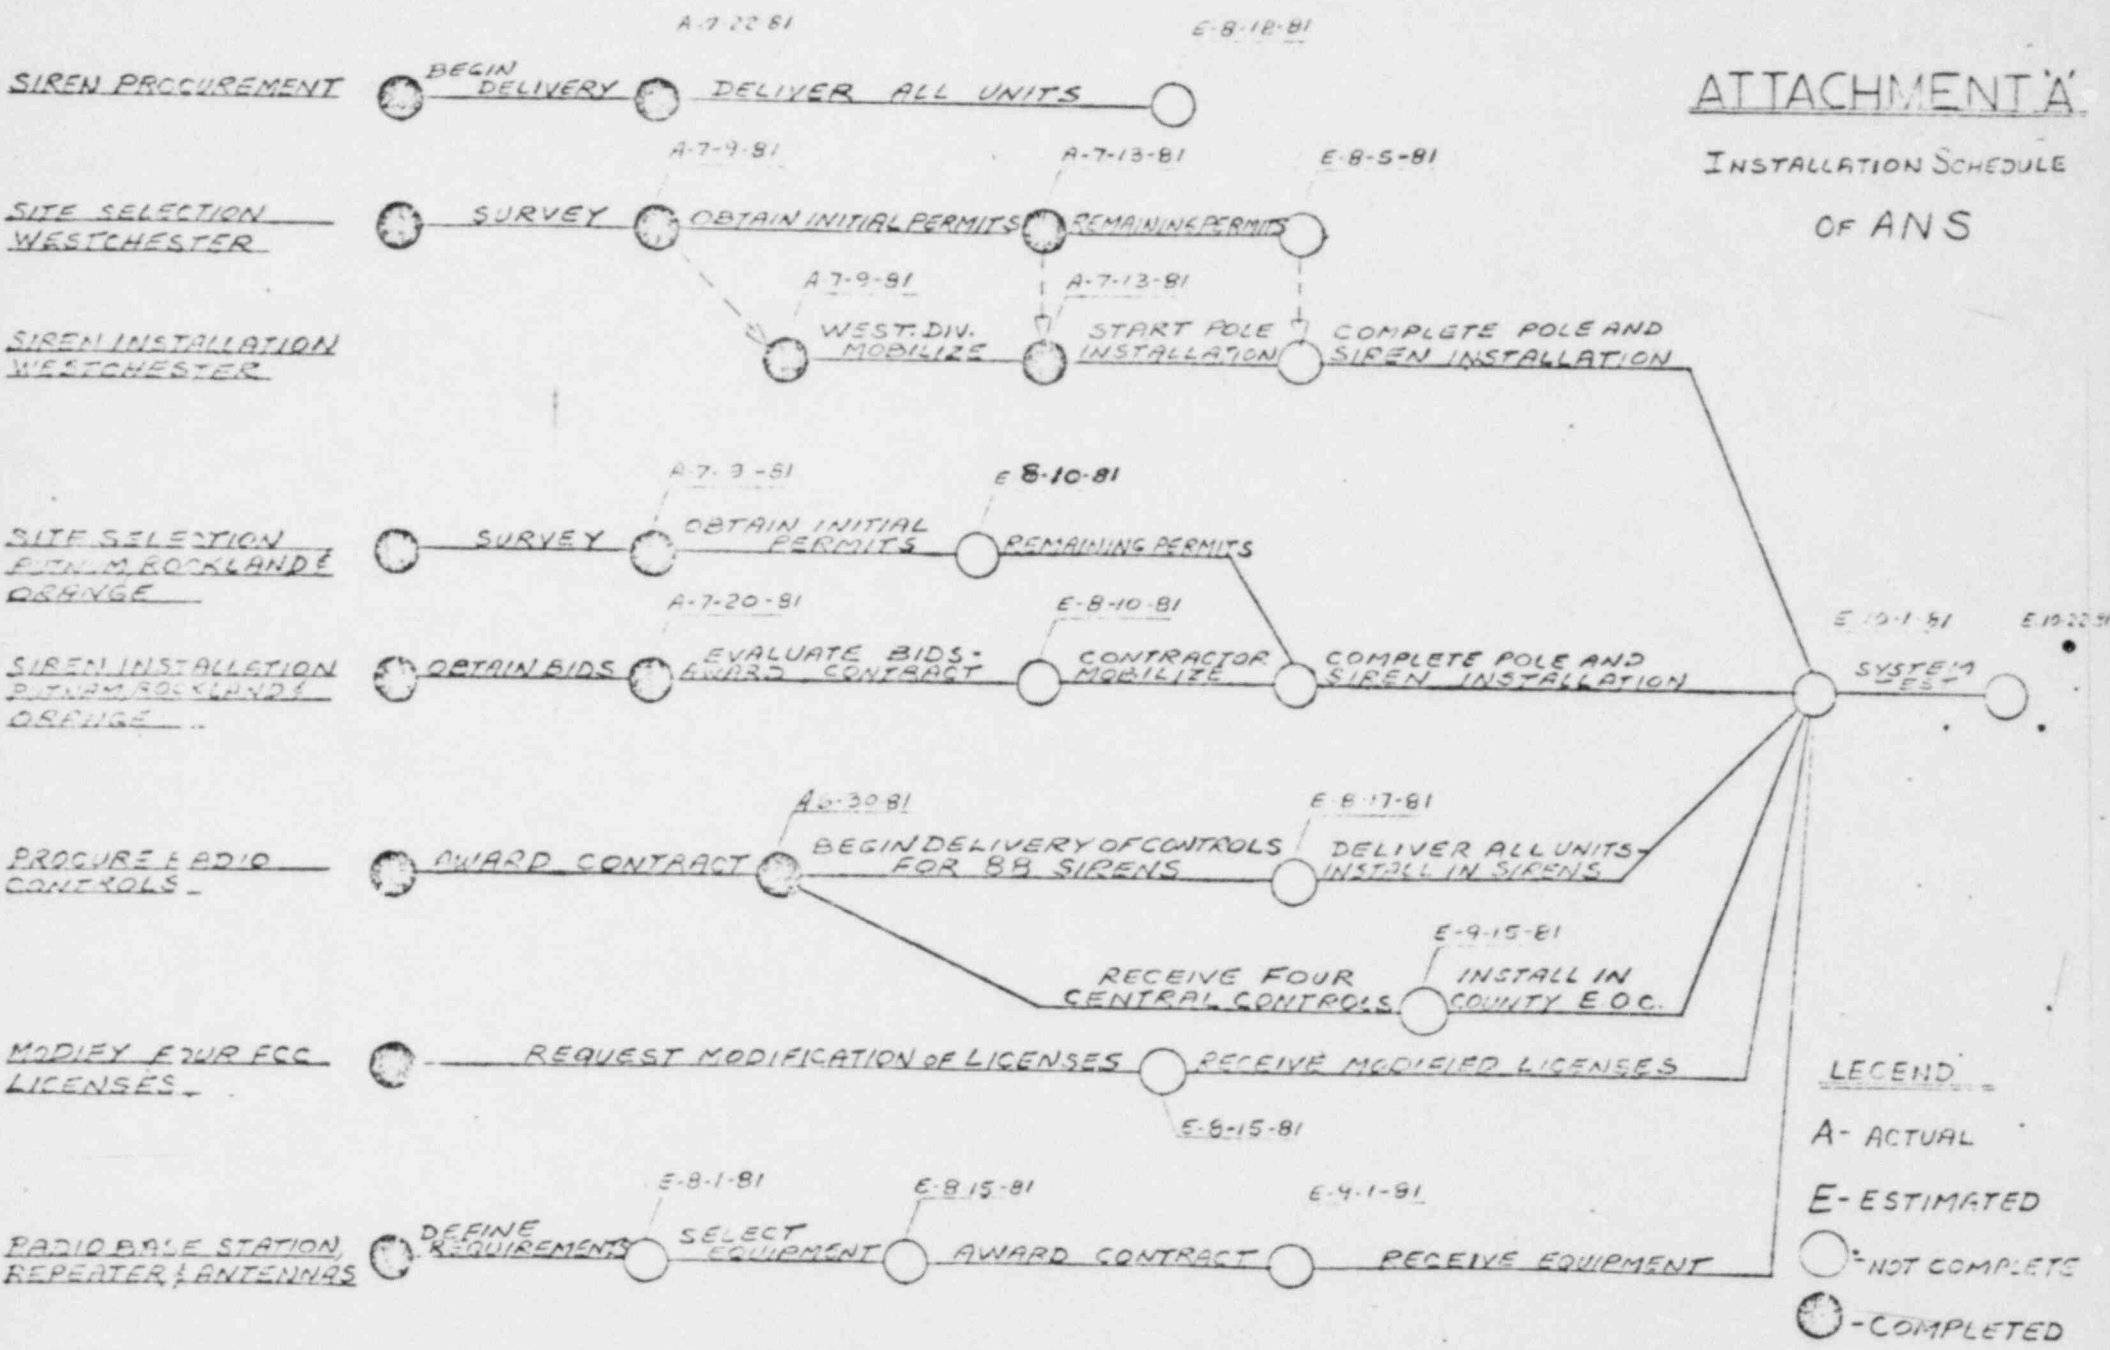 ATTACHMENT 'A'
INSTALLATION SCHEDULE
OF ANS
A-7-22-81
E-8-18-81
SIREN PROCUREMENT
BEGIN
DELIVERY
DELIVER ALL UNITS
A-7-9-81
A-7-13-81
E-8-5-81
SITE SELECTION
WESTCHESTER
SURVEY
OBTAIN INITIAL PERMITS
REMAINING PERMITS
A-7-9-81
A-7-13-81
SIREN INSTALLATION
WESTCHESTER
WEST. DIV.
MOBILIZE
START POLE
INSTALLATION
COMPLETE POLE AND
SIREN INSTALLATION
A-7-9-81
E 8-10-81
SITE SELECTION
PUTNAM, ROCKLAND &
ORANGE
SURVEY
OBTAIN INITIAL
PERMITS
REMAINING PERMITS
A-7-20-81
E-8-10-81
E-10-1-81
E-10-22-81
SIREN INSTALLATION
PUTNAM, ROCKLAND &
ORANGE
OBTAIN BIDS
EVALUATE BIDS-
AWARD CONTRACT
CONTRACTOR
MOBILIZE
COMPLETE POLE AND
SIREN INSTALLATION
SYSTEM
TEST
A 6-30-81
E-8-17-81
PROCURE RADIO
CONTROLS
AWARD CONTRACT
BEGIN DELIVERY OF CONTROLS
FOR 88 SIRENS
DELIVER ALL UNITS-
INSTALL IN SIRENS
E-9-15-81
RECEIVE FOUR
CENTRAL CONTROLS
INSTALL IN
COUNTY E.O.C.
MODIFY FOUR FCC
LICENSES
REQUEST MODIFICATION OF LICENSES
RECEIVE MODIFIED LICENSES
E-8-15-81
E-8-1-81
E-8-15-81
E-9-1-81
RADIO BASE STATION,
REPEATER & ANTENNAS
DEFINE
REQUIREMENTS
SELECT
EQUIPMENT
AWARD CONTRACT
RECEIVE EQUIPMENT
LEGEND
A- ACTUAL
E- ESTIMATED
-NOT COMPLETE
-COMPLETED